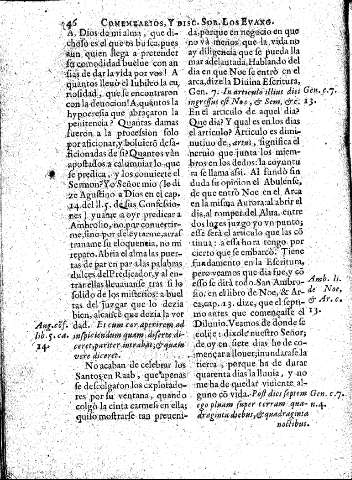 46 COMENTARIOS, Y DISC. SOB. LOS EVANG.
A, Dios de mi alma, que di-
choso es el que os busca, pues
aun quien llega a pretender
su comodidad buelue con an-
sias de dar la vida por vos! A
quantos lleuò el Iubileo la cu
riosidad, que se encontraron
con la deuocion! A quantos la
hypocresia que abraçaron la
penitencia? Quantos damas
fueron a la procession solo
por aficionar, y boluierõ desa-
ficionadas de si? Quantos vàn
apostados a calumniar lo que
se predica, y los conuierte el
Sermon? Yo Señor mio (le di-
ze Agustino a Dios en el cap.
14. del li. 5. de sus Confessio-
nes) yuame a oyr predicar a
Ambrosio, no por conuertir-
me, sino por deleytarme, arras-
trauame su eloquencia, no mi
reparo. Abria el alma las puer-
tas de par en par a las palabras
dulces del Predicador, y al en-
trar ellas lleuauanse tras si lo
solido de los misterios: a bueltas
del juzgar que lo dezia
bien, alcancè que dezia la ver
dad. Et cum cor aperirem ad
inspiciendum quàm diserte di-
ceret, pariter intrabat; & quam
vere diceret.
Aug. cõf.
lib. 5. ca.
14.
No acaban de celebrar los
Santos en Raab, que apenas
se descolgaron los explorado-
res por su ventana, quando
colgò la cinta carmesi en ella;
quiso mostrarse tan preueni-
da, porque en negocio en que
no và menos que la vida no
ay diligencia que se pueda lla
mar adelantada. Hablando del
dia en que Noe se entrò en el
arca, dize la Diuina Escritura,
Gen. 7. In articulo illius diei
ingressus est Noe, & Sem, &c.
Gen. c. 7.
13.
En el articulo de aquel dia?
Que dia? Y qual es en los dias
el articulo? Articulo es dimi-
nutiuo de, artus, significa el
neruio que junta los miem-
bros en los dedos: la coyuntu
ra se llama assi. Al fundò sin
duda su opinion el Abulense,
de que entrò Noe en el Arca
en la misma Aurora al abrir el
dia, al romper del Alua, entre
dos luzes juzgo yo vn punto;
esse serà el articulo que las cõ
tinua: a essa hora tengo por
cierto que se embarcò. Tiene
fundamento en la Escritura,
pero veamos que dia fue, y cõ
esso se dirà todo. San Ambro-
sio, en el libro de Noe, & Ar-
ca, cap. 13. dize, que el septi-
mo antes que començasse el
Diluuio. Veamos de donde se
colige: dixole nuestro Señor,
de oy en siete dias he de co-
mençar a llouer, inundarase la
tierra, porque ha de durar
quarenta dias la lluuia, y no
me ha de quedar viuiente al-
guno cõ vida. Post dies septem
ego pluam super terram qua-
draginta diebus, & quadraginta
noctibus.
Amb. li.
de Noe,
& Ar. c.
13.
Gen. c. 7.
n. 4.